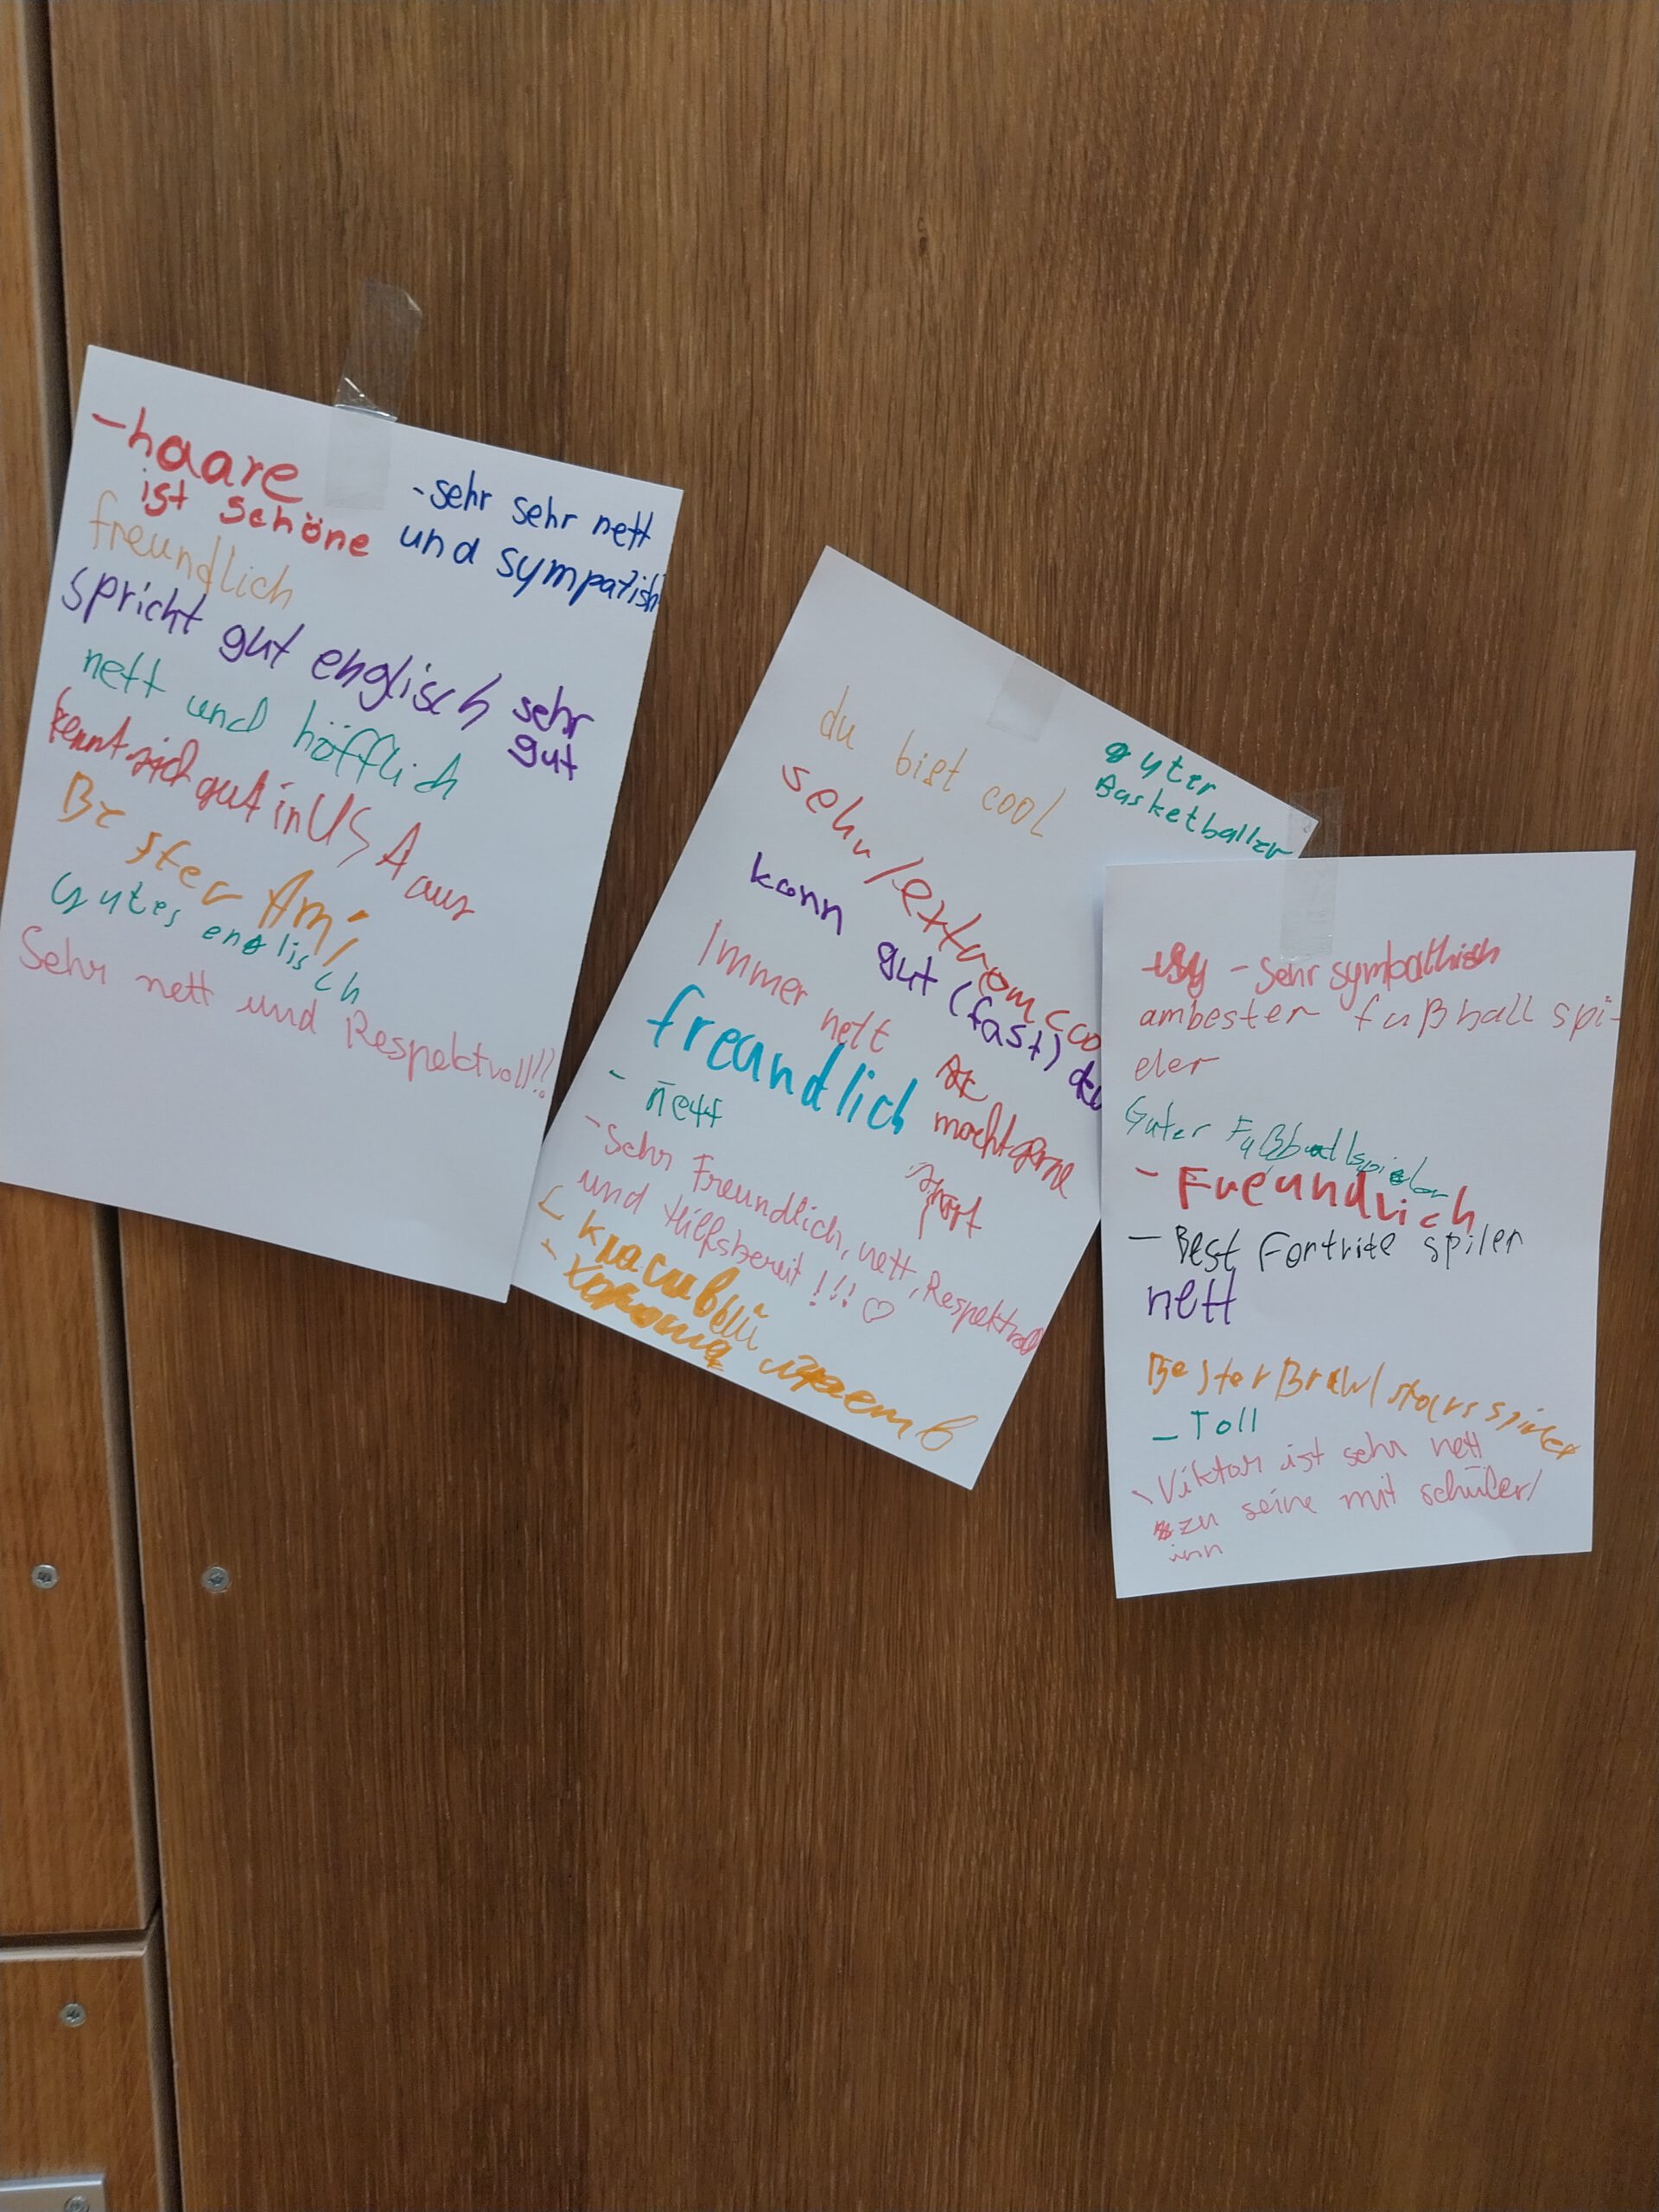 - haare
ist schöne
- sehr sehr nett
und sympatish
freundlich
spricht gut englisch sehr
gut
nett und höfflich
kennt sich gut in USA aus
Bester Ami
Gutes englisch
Sehr nett und Respektvoll!!
du bist cool
guter
Basketballer
sehr/extrem coo
kann gut (fast) du
Immer nett
freundlich
macht gerne
sport
- nett
- Sehr Freundlich, nett, Respektvoll
und Hilfsbereit!!! ♡
- красивый
- играет в
- Sehr sympathish
ambester fußball spi-
eler
Guter Fußballspieler
- Freundlich
- Best Fortnite spiler
nett
Bester Brawl stars spieler
- Toll
- Viktor ist sehr nett
zu seine mit schüler/
inn